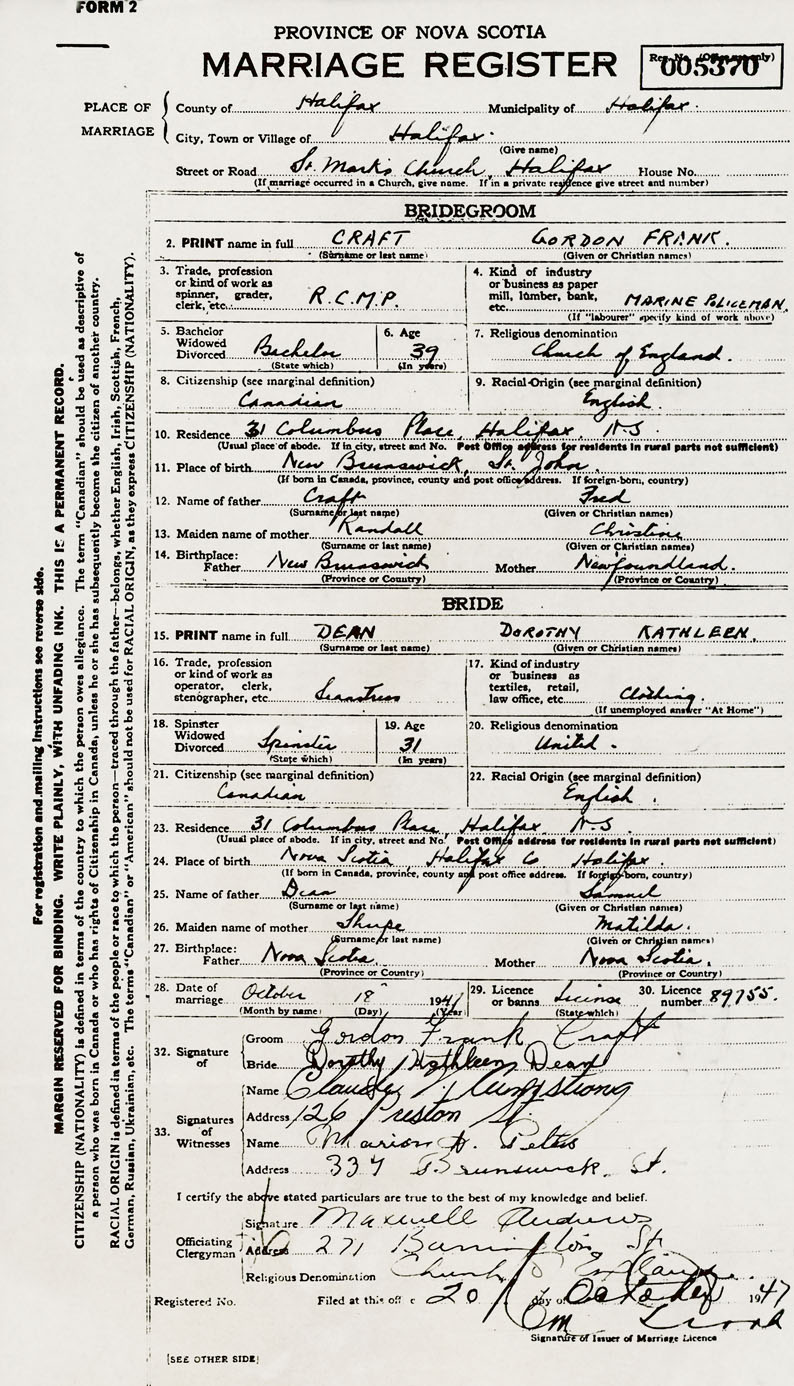 FORM 2
PROVINCE OF NOVA SCOTIA
MARRIAGE REGISTER
Reg. No. (Office use only)
005370
PLACE OF MARRIAGE
County of Halifax Municipality of Halifax.
City, Town or Village of Halifax.
(Give name)
Street or Road St. Mark's Church, Halifax House No.
(If marriage occurred in a Church, give name. If in a private residence give street and number)
BRIDEGROOM
2. PRINT name in full CRAFT GORDON FRANK.
(Surname or last name) (Given or Christian names)
3. Trade, profession or kind of work as spinner, grader, clerk, etc. R.C.M.P.
4. Kind of industry or business as paper mill, lumber, bank, etc. MARINE POLICEMAN.
(If "labourer" specify kind of work above)
5. Bachelor Widowed Divorced Bachelor
(State which)
6. Age 39
(In years)
7. Religious denomination
Church of England.
8. Citizenship (see marginal definition)
Canadian
9. Racial-Origin (see marginal definition)
English.
10. Residence 31 Columbus Place, Halifax, N.S.
(Usual place of abode. If in city, street and No. Post Office address for residents in rural parts not sufficient)
11. Place of birth New Brunswick, St. John.
(If born in Canada, province, county and post office address. If foreign-born, country)
12. Name of father Craft Fred
(Surname or last name) (Given or Christian names)
13. Maiden name of mother Randall Christine
(Surname or last name) (Given or Christian names)
14. Birthplace:
Father New Brunswick Mother Newfoundland.
(Province or Country) (Province or Country)
BRIDE
15. PRINT name in full DEAN DOROTHY KATHLEEN.
(Surname or last name) (Given or Christian names)
16. Trade, profession or kind of work as operator, clerk, stenographer, etc Seamstress
17. Kind of industry or business as textiles, retail, law office, etc. Clothing.
(If unemployed answer "At Home")
18. Spinster Widowed Divorced Spinster
(State which)
19. Age 31
(In years)
20. Religious denomination
United.
21. Citizenship (see marginal definition)
Canadian
22. Racial Origin (see marginal definition)
English.
23. Residence 31 Columbus Place, Halifax N.S.
(Usual place of abode. If in city, street and No. Post Office address for residents in rural parts not sufficient)
24. Place of birth Nova Scotia, Halifax Co Halifax.
(If born in Canada, province, county and post office address. If foreign-born, country)
25. Name of father Dean Samuel
(Surname or last name) (Given or Christian names)
26. Maiden name of mother Matilda.
(Surname or last name) (Given or Christian names)
27. Birthplace:
Father Nova Scotia. Mother Nova Scotia.
(Province or Country) (Province or Country)
28. Date of marriage October 18 1947
(Month by name) (Day) (Year)
29. Licence or banns License
(State which)
30. Licence number 89755.
32. Signature of
Groom Gordon Frank Craft
Bride Dorothy Kathleen Dean
33. Signatures of Witnesses
Name Armstrong
Address 126 Preston St.
Name Marion H. Peters
Address 337 Brunswick. St.
I certify the above stated particulars are true to the best of my knowledge and belief.
Officiating Clergyman
Signature Maxwell Andrews
Address 271 Barrington St
Religious Denomination Church of England.
Registered No. Filed at this office 20 day of October 1947
Signature of Issuer of Marriage Licence
[SEE OTHER SIDE]
For registration and mailing instructions see reverse side.
MARGIN RESERVED FOR BINDING. WRITE PLAINLY, WITH UNFADING INK. THIS IS A PERMANENT RECORD.
CITIZENSHIP (NATIONALITY) is defined in terms of the country to which the person owes allegiance. The term "Canadian" should be used as descriptive of
a person who was born in Canada or who has rights of Citizenship in Canada, unless he or she has subsequently become the citizen of another country.
RACIAL ORIGIN is defined in terms of the people or race to which the person—traced through the father—belongs, whether English, Irish, Scottish, French,
German, Russian, Ukrainian, etc. The terms "Canadian" or "American" should not be used for RACIAL ORIGIN, as they express CITIZENSHIP (NATIONALITY).